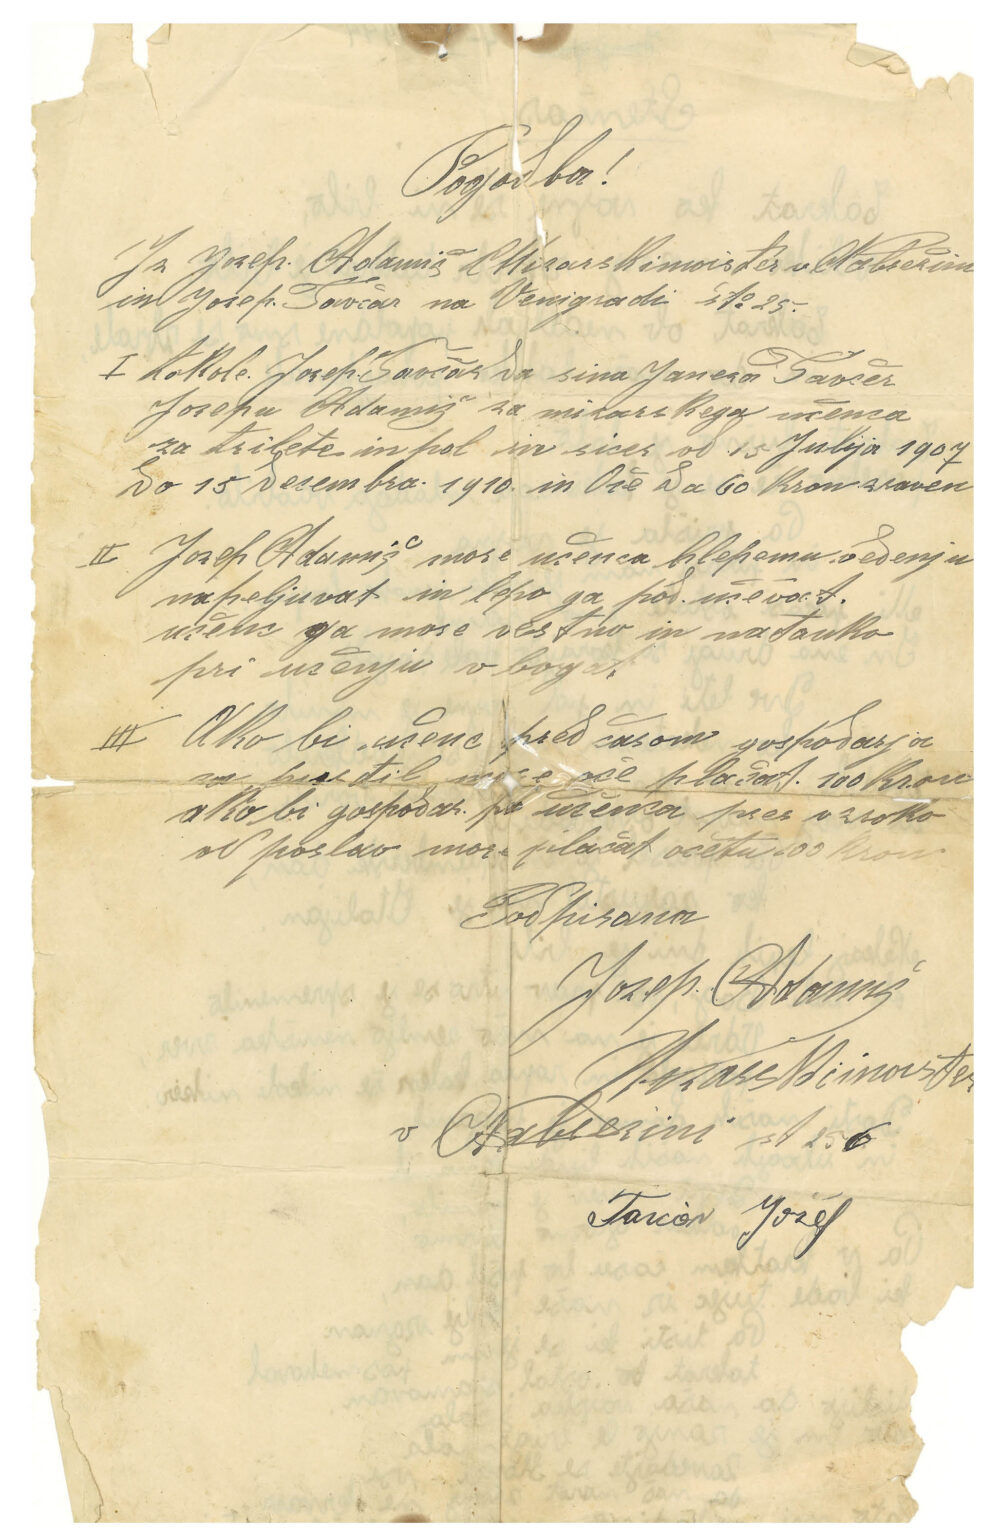 Pogodba!
Jz Jozep. Adamič Mizarski moister v Nabrežini
in Jozep. Tavčar na Venigradi št. 25.
I tokole. Jozep. Tavčar da sina Janeza Tavčer
Jozepu Adamič za mizarskega učenca
za trilete in pol in sicer od 15 Julija 1907
do 15 Dezembra. 1910. in Oče da 60 Kron zraven
II Jozep Adamič more učenca hlepemu vedenju
napeljuvat in lepo ga pod. učevat.
učenc ga more vestno in natanko
pri učenju vbogat.
III Ako bi učenc pred časom gospodarja
zapustil more oče plačat. 100 Kron
ako bi gospodar. pa učenca prez vzroka
od poslav more plačat očetu 100 Kron
Podpisana
Jozep. Adamič
Mizarski moister
v Nabrezini št 256
Tavčar Jožef